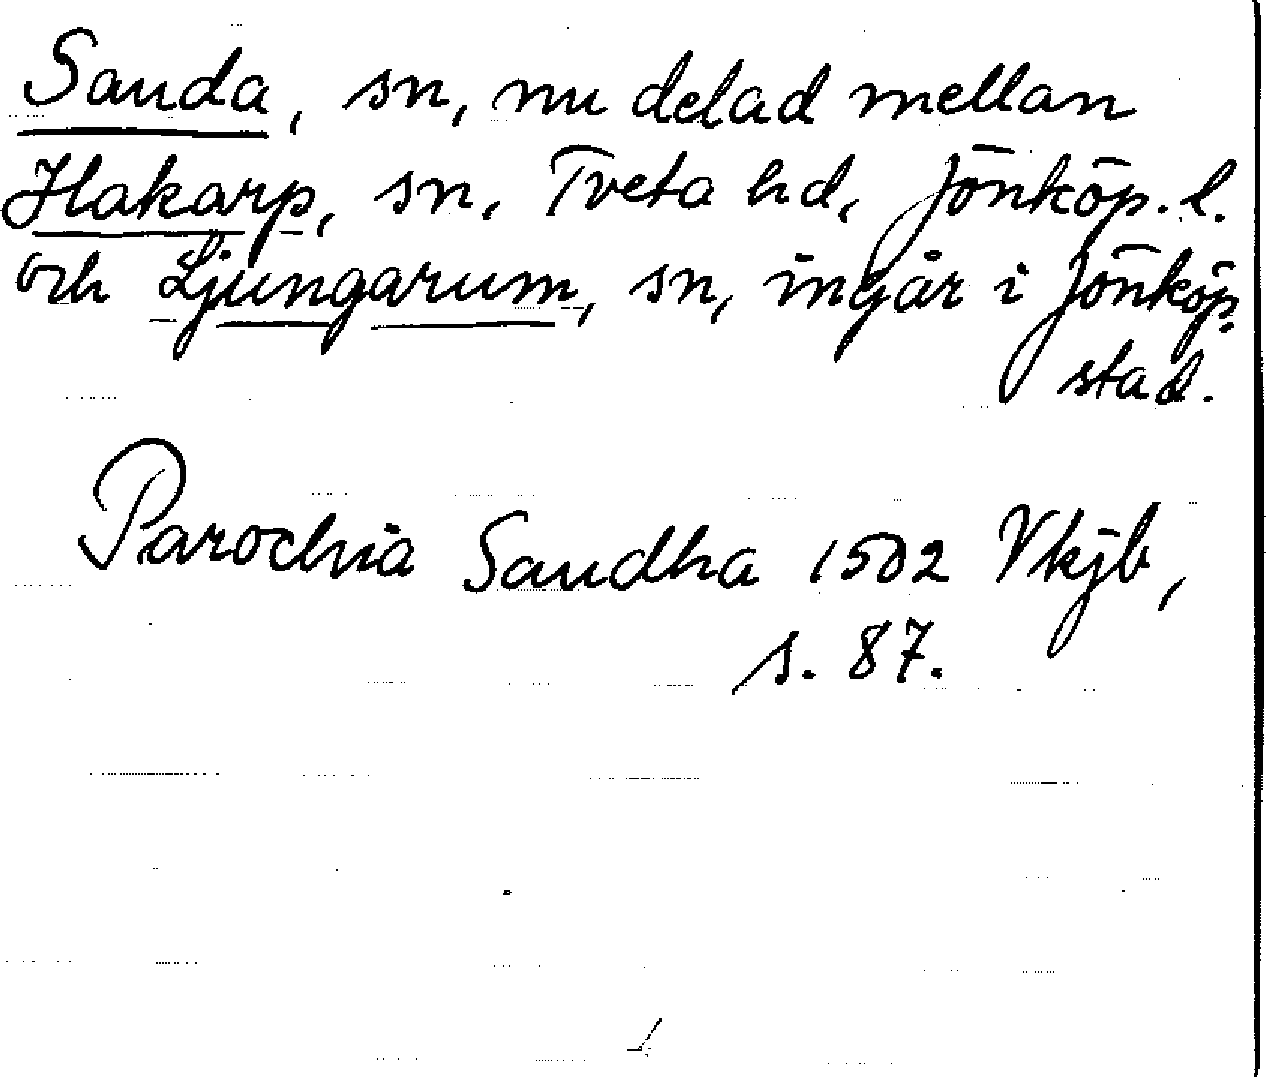 Sanda, sn, nu delad mellan
Hakarp, sn, Tveta hd, Jönköp. l.
och Ljungarum, sn, ingår i Jönköp.
stad.
Parochia Sandha 1502 Vkjb,
s. 87.